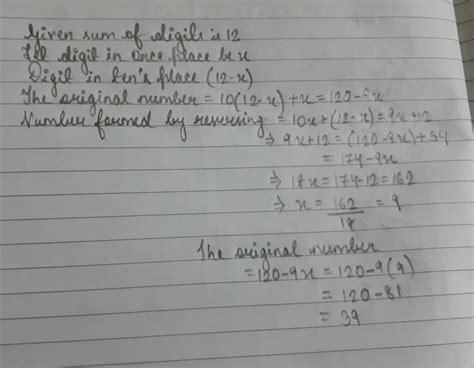 Given sum of digits is 12
Let digit in once place be x
Digit in ten's place (12-x)
The original number = 10(12-x)+x = 120-9x
Number formed by reversing = 10x+(12-x) = 9x+12
⇒ 9x+12 = (120-9x)+54
= 174-9x
⇒ 18x = 174-12 = 162
⇒ x = 162/18 = 9
The original number
= 120-9x = 120-9(9)
= 120-81
= 39